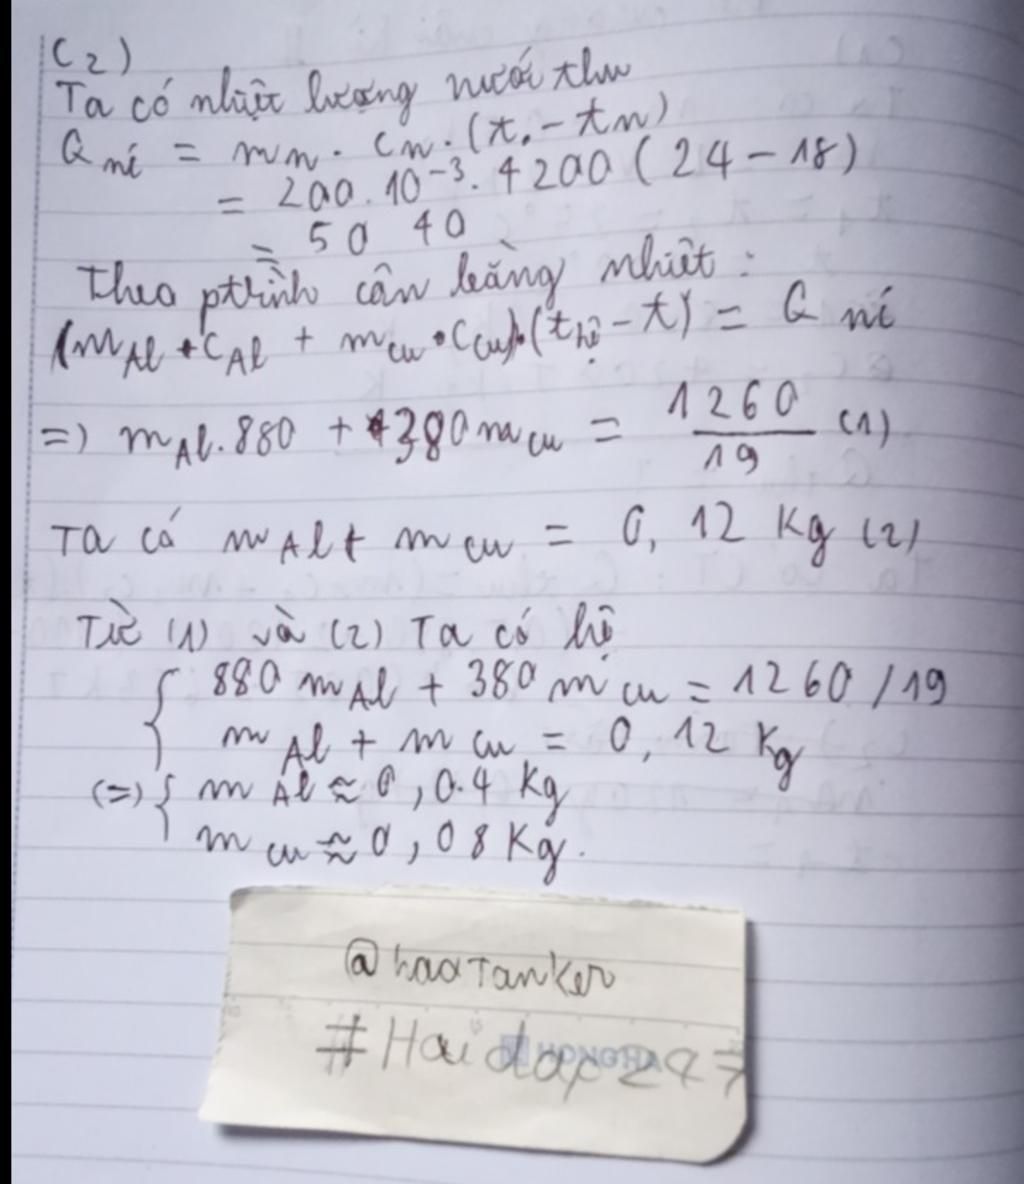 C2)
Ta có nhiệt lượng nước thu
Q nć = mn . cn . (t. - tn)
= 200 . 10⁻³ . 4200 ( 24 - 18 )
= 50 40
Theo ptrình cân bằng nhiệt :
(mAl • cAl + mcu • Ccu) • (thệ - t) = Q nć
=) mAl . 880 + 380 mcu = 1260/19 (1)
Ta có mAl + mcu = 0, 12 Kg (2)
Từ (1) và (2) Ta có hệ
{ 880 mAl + 380 mcu = 1260 / 19
mAl + mcu = 0, 12 Kg
(=) { mAl ≈ 0 , 0.4 Kg
mcu ≈ 0 , 08 Kg .
@haoTanker
#Hoidap247
HONGHA